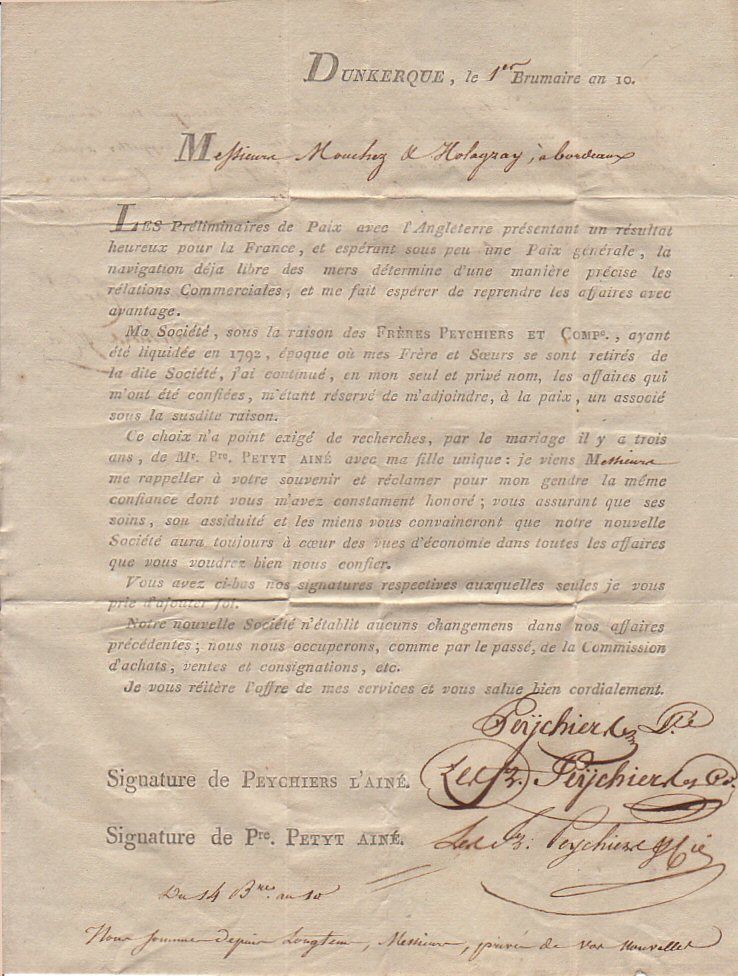 DUNKERQUE, le 1er Brumaire an 10.
Messieurs Mouchez & Holagray, a bordeaux
LES Préliminaires de Paix avec l'Angleterre présentant un résultat
heureux pour la France, et espérant sous peu une Paix générale, la
navigation déja libre des mers détermine d'une manière précise les
rélations Commerciales, et me fait espérer de reprendre les affaires avec
avantage.
Ma Société, sous la raison des FRÈRES PEYCHIERS ET COMPe., ayant
été liquidée en 1792, époque où mes Frère et Sœurs se sont retirés de
la dite Société, j'ai continué, en mon seul et privé nom, les affaires qui
m'ont été confiées, m'étant réservé de m'adjoindre, à la paix, un associé
sous la susdite raison.
Ce choix n'a point exigé de recherches, par le mariage il y a trois
ans, de Mr. Pre. PETYT AINÉ avec ma fille unique : je viens Messieurs
me rappeller à votre souvenir et réclamer pour mon gendre la même
confiance dont vous m'avez constament honoré ; vous assurant que ses
soins, son assiduité et les miens vous convaincront que notre nouvelle
Société aura toujours à cœur des vues d'économie dans toutes les affaires
que vous voudrez bien nous confier.
Vous avez ci-bas nos signatures respectives auxquelles seules je vous
prie d'ajouter foi.
Notre nouvelle Société n'établit aucuns changemens dans nos affaires
précédentes ; nous nous occuperons, comme par le passé, de la Commission
d'achats, ventes et consignations, etc.
Je vous réitère l'offre de mes services et vous salue bien cordialement.
Peÿchiers
Signature de PEYCHIERS L'AINÉ. Les fr. Peÿchiers & Co.
Signature de Pre. PETYT AINÉ. Les fr: Peychiers & Cie
Du 14 Bres an 10
Nous sommes depuis Longtems, Messieurs, privés de vos nouvelles